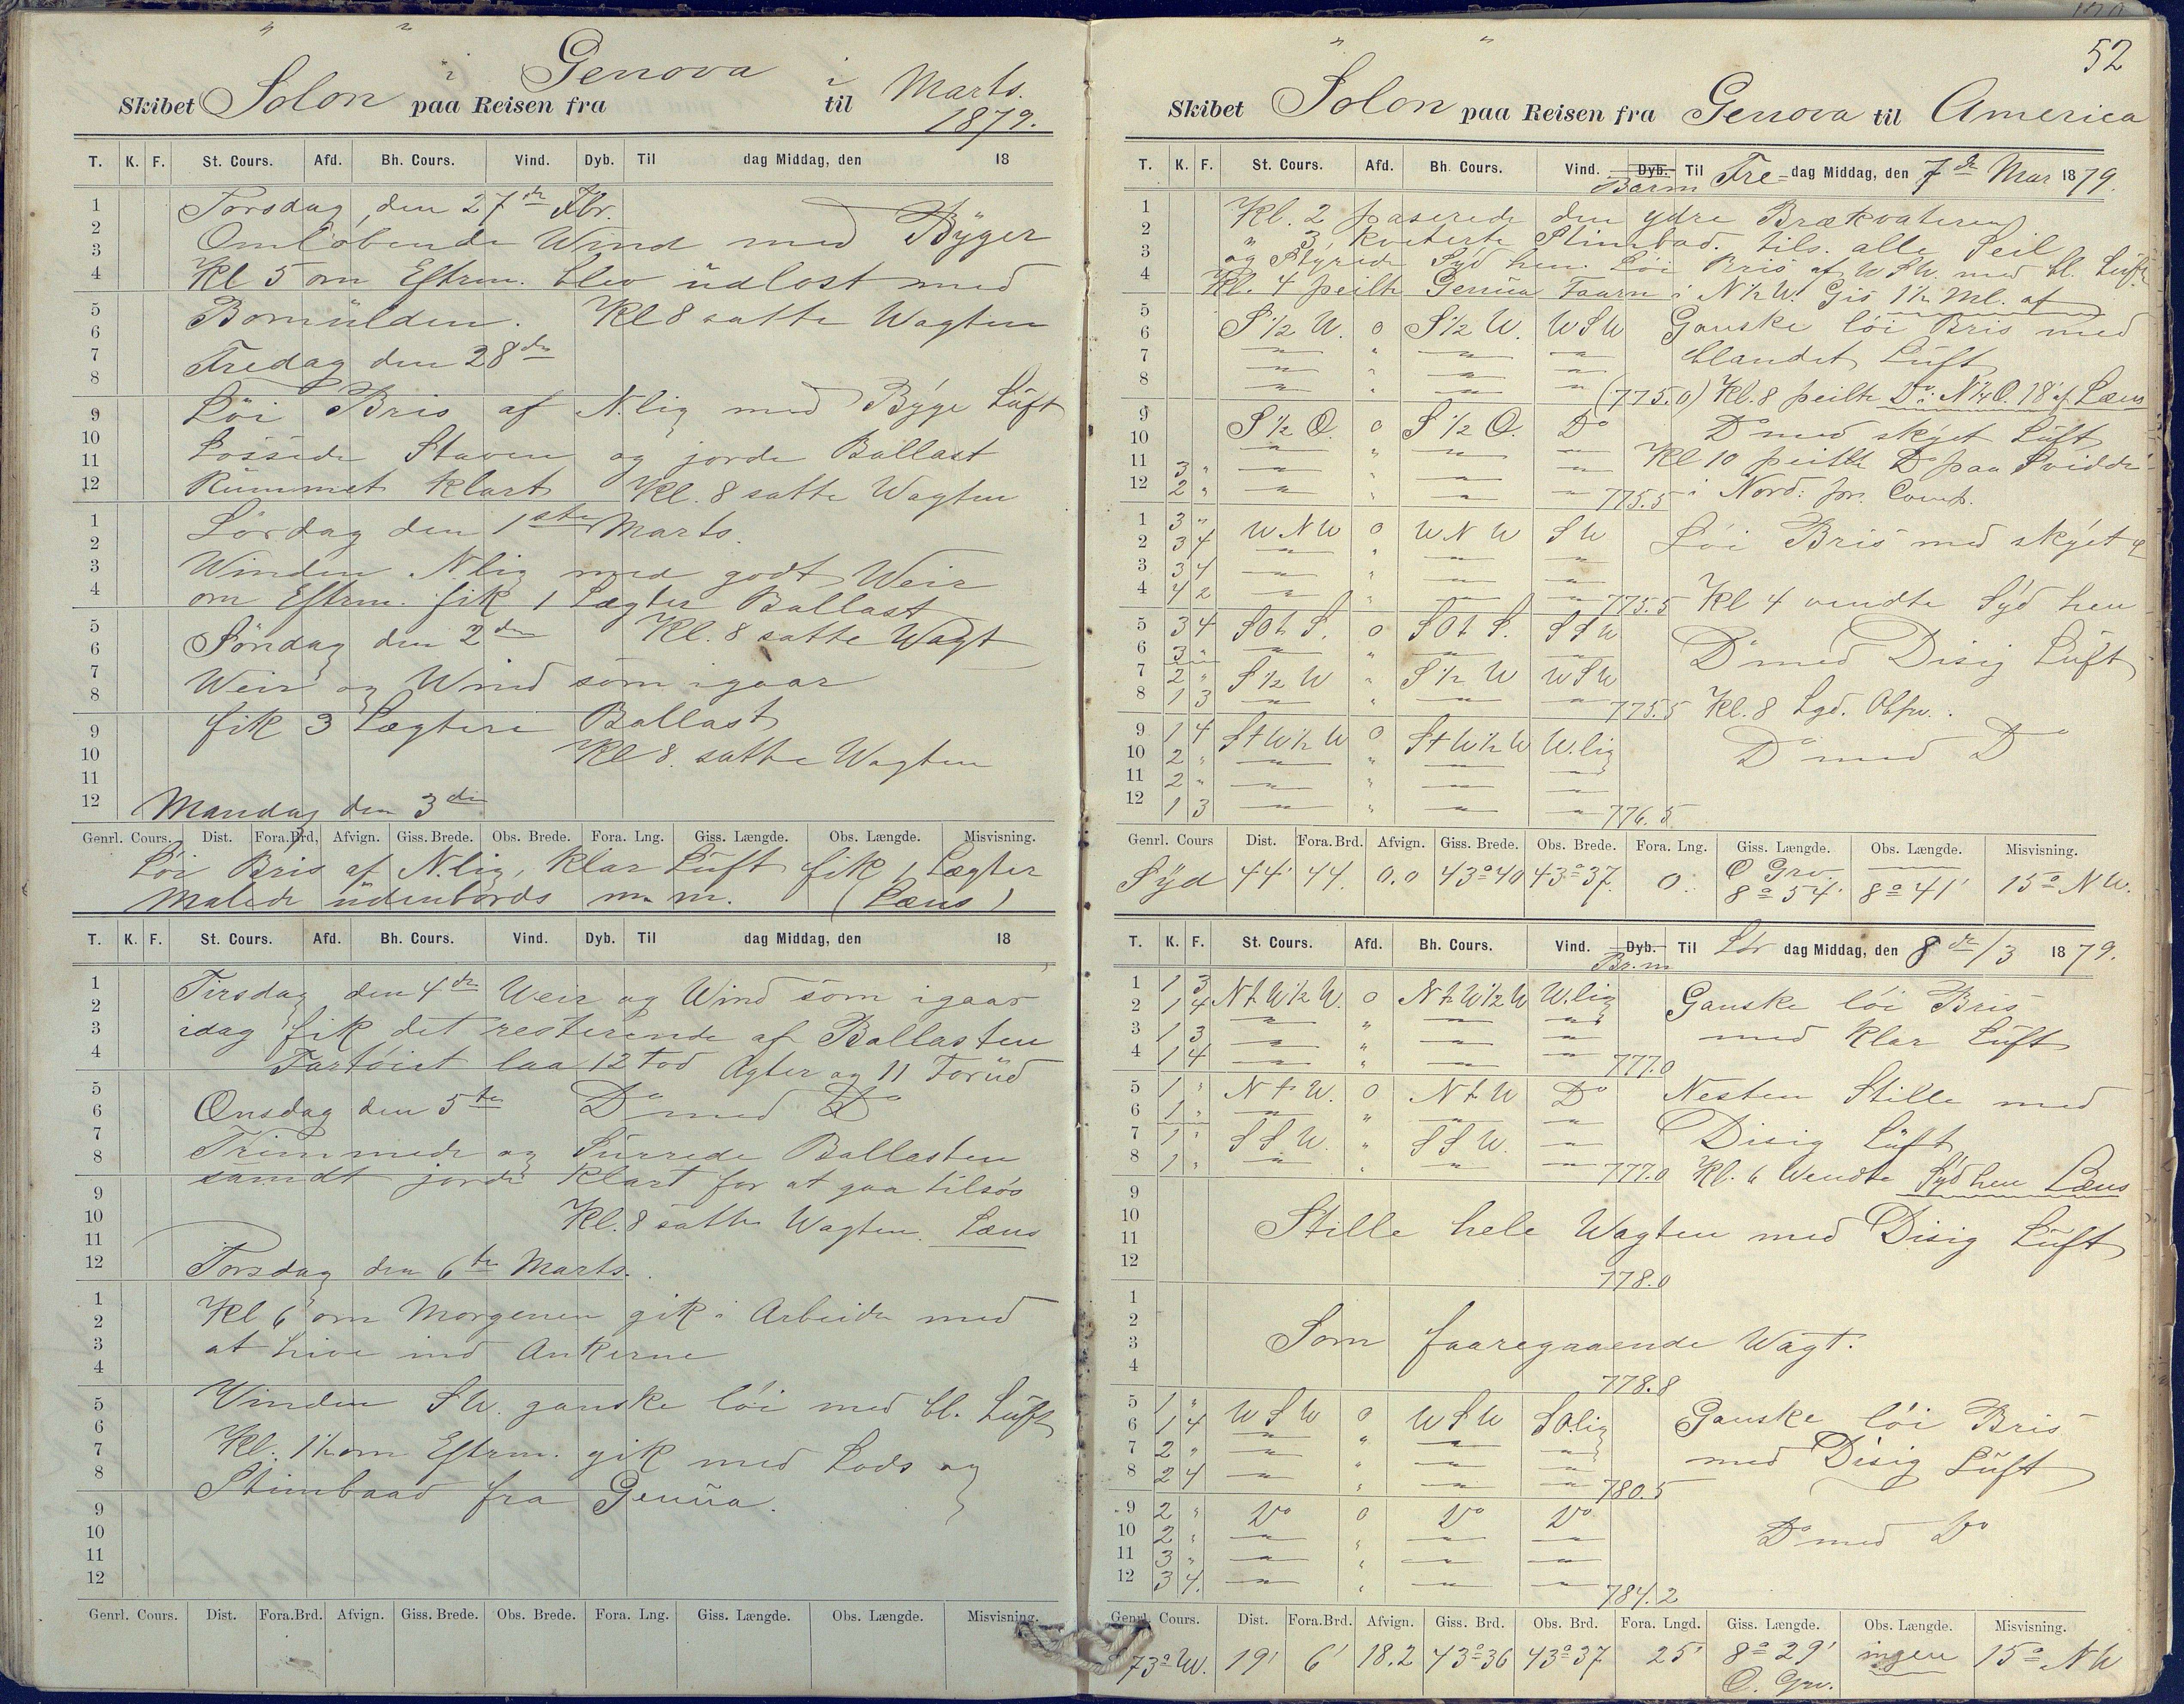 " "
Skibet Solon i paa Reisen fra Genova i til Marts.
1879.
T. K. F. St. Cours. Afd. Bh. Cours. Vind. Dyb. Til dag Middag, den 18
Torsdag, den 27de Fbr.
Omløbende Wind med Byger
Kl 5 om Eftrm. blev udlost med
Bomulden. Kl 8 satte Wagten
Fredag den 28de
Løi Bris af N.lig med Byge Luft
Lossede Staven og jorde Ballast
Rummet klart Kl. 8 satte Wagten
Lørdag den 1ste Marts.
Winden N.lig med godt Weir
om Eftrm. fik 1 Lægter Ballast
Søndag den 2den Kl. 8 satte Wagt
Weir og Wind som igaar
fik 3 Lægtere Ballast
Kl 8. satte Wagten
Mandag den 3die
Genrl. Cours. Dist. Fora.Brd. Afvign. Giss. Brede. Obs. Brede. Fora. Lng. Giss. Længde. Obs. Længde. Misvisning.
Løi Bris af N.lig, klar Luft fik 1 Lægter
Malede udenbords m. m. (Læns)
T. K. F. St. Cours. Afd. Bh. Cours. Vind. Dyb. Til dag Middag, den 18
Tirsdag den 4de Weir og Wind som igaar
idag fik det resterende af Ballasten
Fartøiet laa 12 Fod Agter og 11 Forud
Onsdag den 5te Do med Do
Trimmede og Surrede Ballasten
samdt jorde klart for at gaa tilsøs
Kl. 8 satte Wagten. Læns
Torsdag den 6te Marts.
Kl 6 om Morgenen gik i Arbeide med
at hive ind Ankerne
Vinden SW. ganske løi med bl. Luft
Kl. 1½ om Eftrm. gik med Lods og
Stimbaad fra Genua.
Genrl. Cours. Dist. Fora.Brd. Afvign. Giss. Brede. Obs. Brede. Fora. Lng. Giss. Længde. Obs. Længde. Misvisning.
52
" "
Skibet Solon paa Reisen fra Genova til America
T. K. F. St. Cours. Afd. Bh. Cours. Vind. Dyb. Barm Til Fre- dag Middag, den 7de Mar 1879.
Kl. 2 paserede den ydre Brækvateren
" 3, kveterte Stimbad. tils. alle Seil
og Styrede Syd hen. Løi Bris af WSW. med bl. Luft
Kl. 4 peilte Genua Taarn i N½W. Gis 1½ Ml. af
S½W. 0 S½W. WSW Ganske løi Bris med
blandet Luft
(775.0) Kl. 8 peilte Do: N¼O. 18' af Læns
S½O. 0 S½O. Do Do med skyet Luft
Kl 10 peilte Do paa Svidde
3 " 
2 " 775.5 i Nord: pr. Comp.
3 " WNW 0 WNW SW Løi Bris med skyet
3 4
3 4
4 2 775.5 Kl 4 vendte Syd hen
3 4 SOtS. 0 SOtS. SSW
3 " Do med Disig Luft
2 " S½W " S½W WSW
1 3 775.5 Kl. 8
1 4 StW½W 0 StW½W W.lig
2 " Do med Do
2 "
1 3 776.5
Genrl. Cours Dist. Fora.Brd. Afvign. Giss. Brede. Obs. Brede. Fora. Lng. Giss. Længde. Obs. Længde. Misvisning.
Syd 44' 44. 0.0 43°40 43°37. 0. O Grv. 8°54' 8°41' 15° NW.
T. K. F. St. Cours. Afd. Bh. Cours. Vind. Dyb. Br.m Til Lør dag Middag, den 8de/3 1879.
1 3 NtW½W. 0 NtW½W W.lig Ganske løi Bris
1 4
1 3 med klar Luft
1 4 777.0
1 " NtW. 0 NtW Do Nesten Stille med
1 "
1 " SSW. " SSW. Disig Luft
1 " 777.0 Kl. 6 Wendte Syd hen Læns
Stille hele Wagten med Disig Luft
778.0
Som faaregaaende Wagt.
778.8
1 " WSW 0 WSW SO.lig Ganske løi Bris
1 4
2 " med Disig Luft
2 4 780.5
2 " Do 0 Do Do
2 " Do med Do
3 "
3 4. 784.2
Genrl. Cours. Dist. Fora.Brd. Afvign. Giss. Brd. Obs. Brd. Fora. Lngd. Giss. Længde. Obs. Længde. Misvisning.
73° W. 19' 6' 18.2 43°36 43°37 25' 8°29' O. Grv. ingen 15° NW